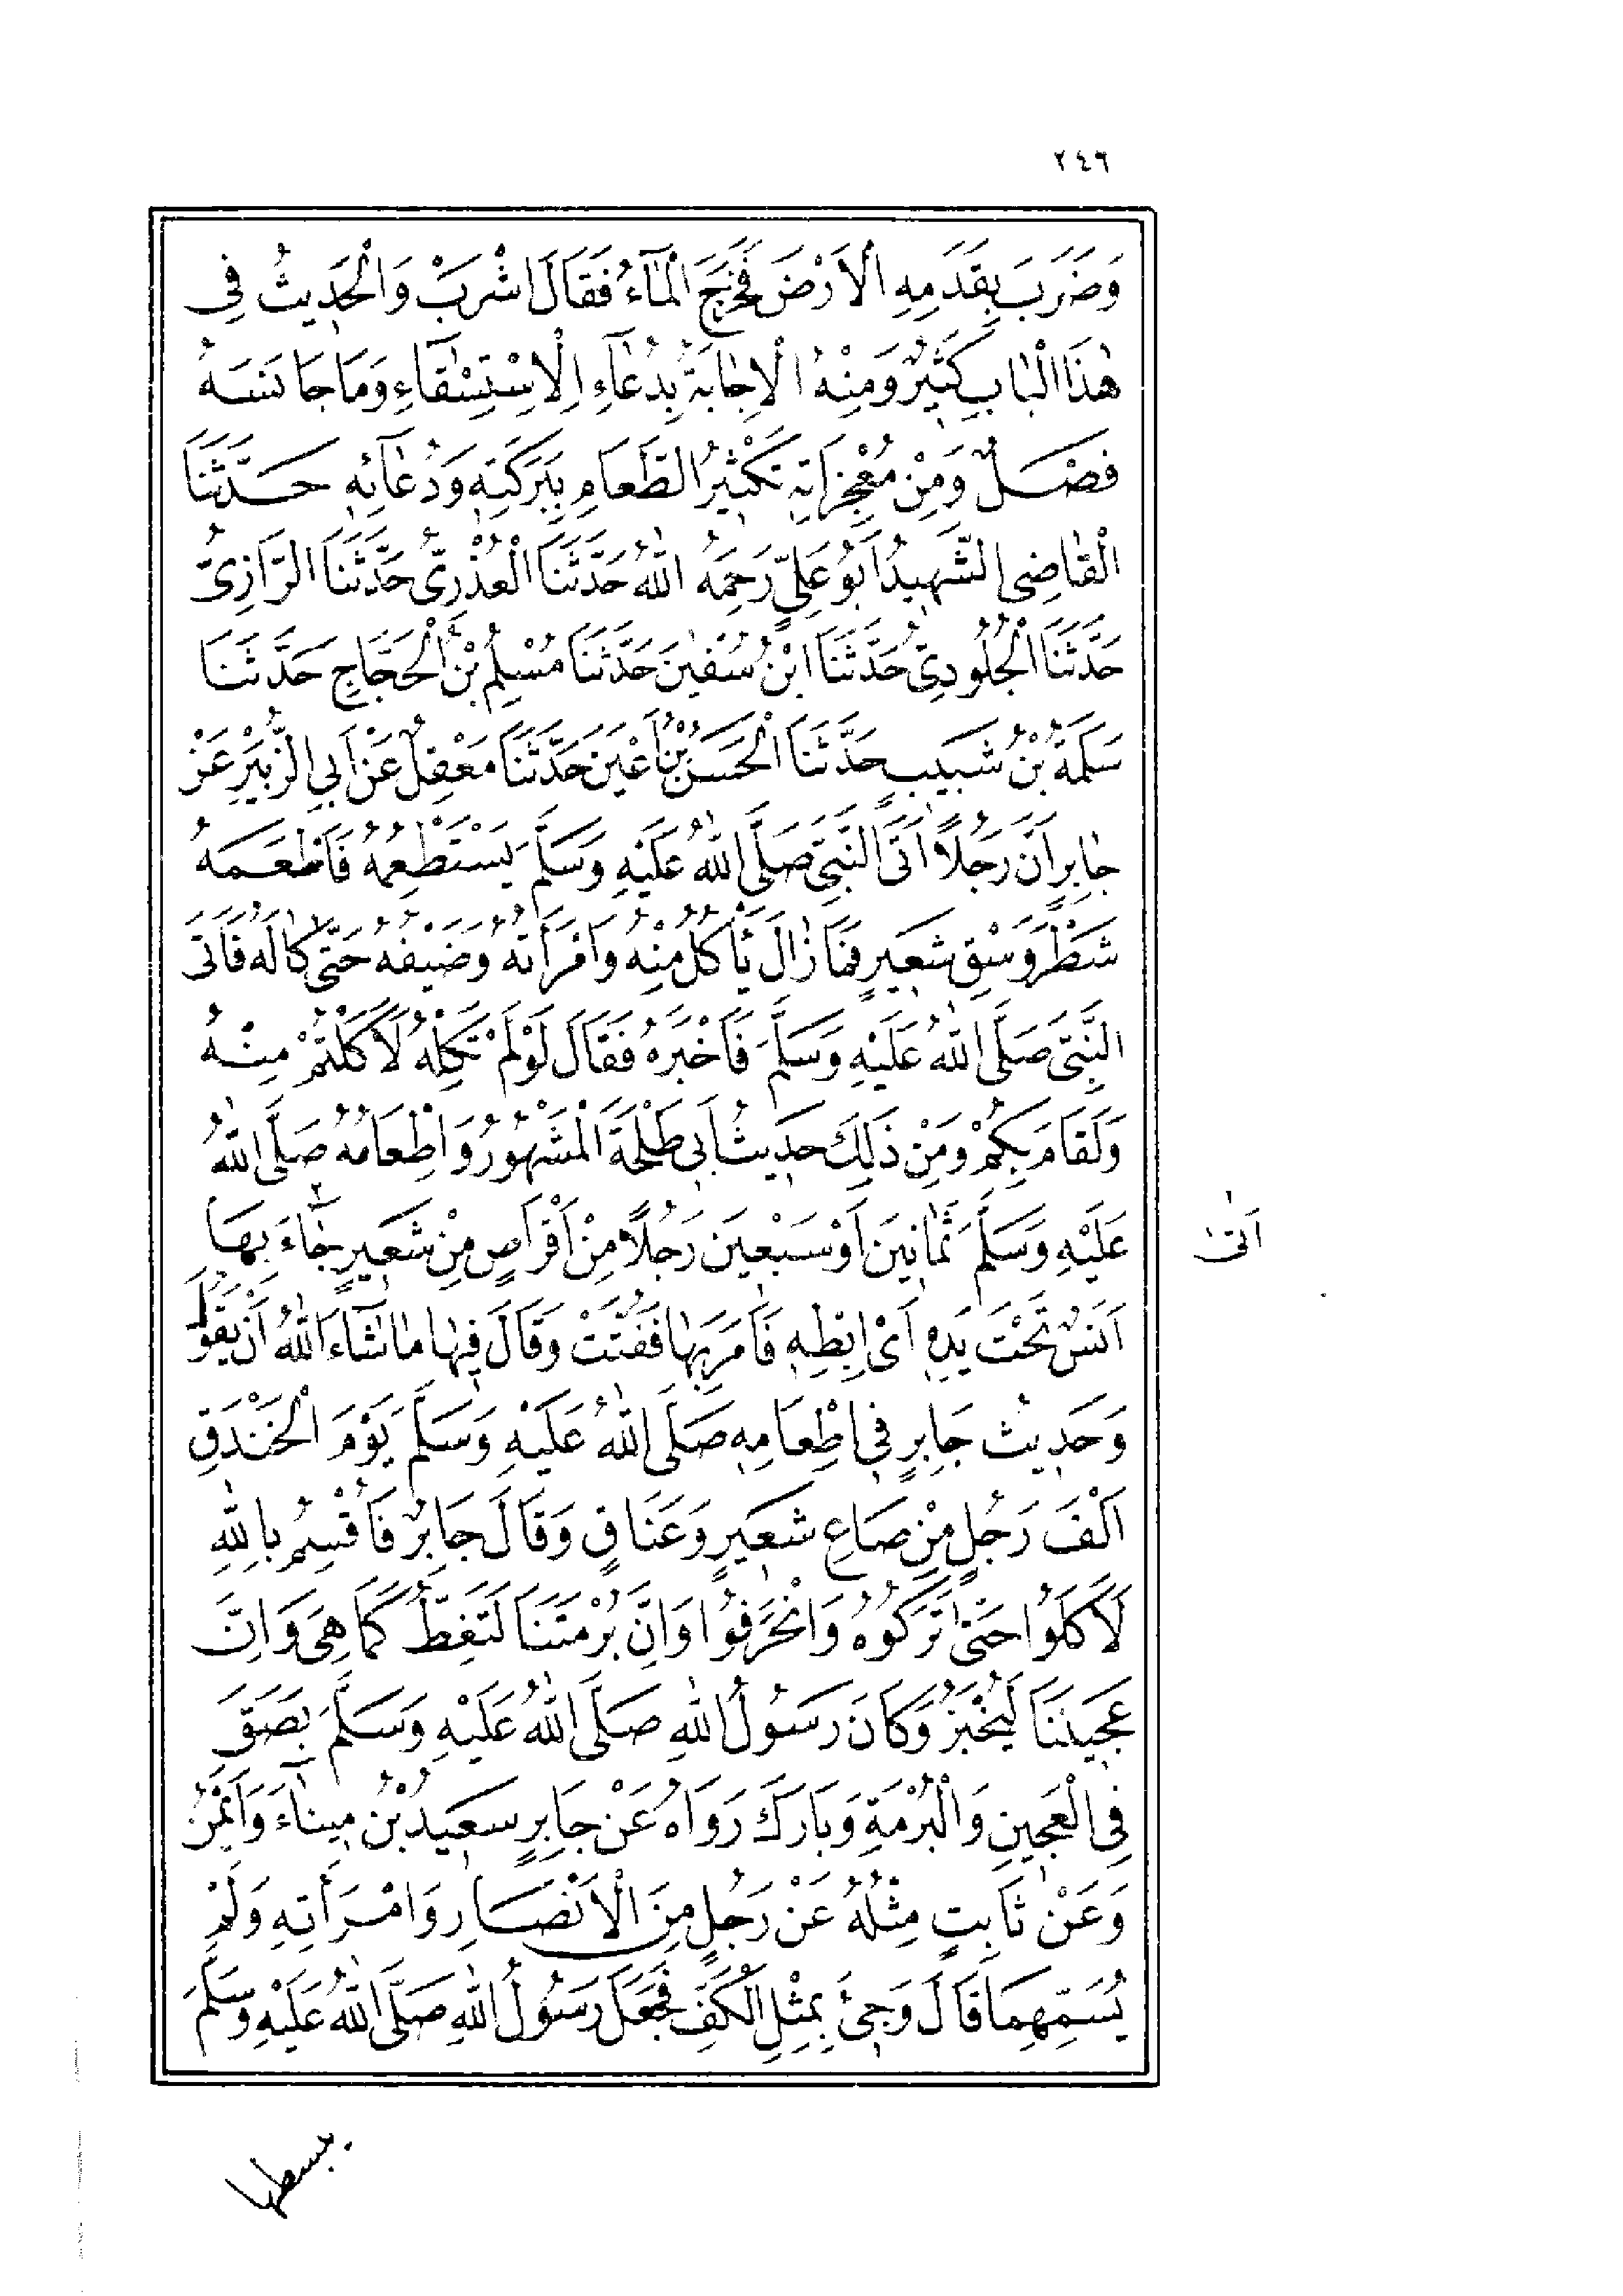 ٢٤٦
وَضَرَبَ بِقَدَمِهِ الْاَرْضَ فَخَرَجَ الْمَاۤءُ فَقَالَ اشْرَبْ وَالْحَدِيثُ فِي
هٰذَا الْبَابِ كَثِيرٌ وَمِنْهُ الْاِجَابَةُ بِدُعَاۤءِ الْاِسْتِسْقَاۤءِ وَمَا جَانَسَهُ
فَصْلٌ وَمِنْ مُعْجِزَاتِهِ تَكْثِيرُ الطَّعَامِ بِبَرَكَتِهِ وَدُعَاۤئِهِ حَدَّثَنَا
الْقَاضِى الشَّهِيدُ اَبُو عَلِيٍّ رَحِمَهُ اللّٰهُ حَدَّثَنَا الْعُذْرِىُّ حَدَّثَنَا الرَّازِىُّ
حَدَّثَنَا الْجُلُودِىُّ حَدَّثَنَا ابْنُ سُفْيٰنَ حَدَّثَنَا مُسْلِمُ بْنُ الْحَجَّاجِ حَدَّثَنَا
سَلَمَةُ بْنُ شَبِيبٍ حَدَّثَنَا الْحَسَنُ بْنُ اَعْيَنَ حَدَّثَنَا مَعْقِلٌ عَنْ اَبِي الزُّبَيْرِ عَنْ
جَابِرٍ اَنَّ رَجُلًا اَتَى النَّبِىَّ صَلَّى اللّٰهُ عَلَيْهِ وَسَلَّمَ يَسْتَطْعِمُهُ فَاَطْعَمَهُ
شَطْرَ وَسْقِ شَعِيرٍ فَمَا زَالَ يَأْكُلُ مِنْهُ وَامْرَأَتُهُ وَضَيْفُهُ حَتّٰى كَالَهُ فَاَتَى
النَّبِىَّ صَلَّى اللّٰهُ عَلَيْهِ وَسَلَّمَ فَاَخْبَرَهُ فَقَالَ لَوْ لَمْ تَكِلْهُ لَاَكَلْتُمْ مِنْهُ
وَلَقَامَ بِكُمْ وَمِنْ ذٰلِكَ حَدِيثُ اَبِى طَلْحَةَ الْمَشْهُورُ وَاِطْعَامُهُ صَلَّى اللّٰهُ
عَلَيْهِ وَسَلَّمَ ثَمَانِينَ اَوْ سَبْعِينَ رَجُلًا مِنْ اَقْرَاصٍ مِنْ شَعِيرٍ جَاۤءَ بِهَا
اَتٰى
اَنَسٌ تَحْتَ يَدِهِ اَىْ اِبْطِهِ فَاَمَرَ بِهَا فَفُتَّتْ وَقَالَ فِيهَا مَا شَاۤءَ اللّٰهُ اَنْ يَقُولَ
وَحَدِيثُ جَابِرٍ فِى اِطْعَامِهِ صَلَّى اللّٰهُ عَلَيْهِ وَسَلَّمَ يَوْمَ الْخَنْدَقِ
اَلْفَ رَجُلٍ مِنْ صَاعِ شَعِيرٍ وَعَنَاقٍ وَقَالَ جَابِرٌ فَاُقْسِمُ بِاللّٰهِ
لَاَكَلُوا حَتّٰى تَرَكُوهُ وَانْحَرَفُوا وَاِنَّ بُرْمَتَنَا لَتَغِطُّ كَمَا هِىَ وَاِنَّ
عَجِينَنَا لَيُخْبَزُ وَكَانَ رَسُولُ اللّٰهِ صَلَّى اللّٰهُ عَلَيْهِ وَسَلَّمَ بَصَقَ
فِى الْعَجِينِ وَالْبُرْمَةِ وَبَارَكَ رَوَاهُ عَنْ جَابِرٍ سَعِيدُ بْنُ مِينَاۤءَ وَاَيْمَنُ
وَعَنْ ثَابِتٍ مِثْلُهُ عَنْ رَجُلٍ مِنَ الْاَنْصَارِ وَامْرَأَتِهِ وَلَمْ
يُسَمِّهِمَا قَالَ وَجِىءَ بِمِثْلِ الْكَفِّ فَجَعَلَ رَسُولُ اللّٰهِ صَلَّى اللّٰهُ عَلَيْهِ وَسَلَّمَ
يبسطها